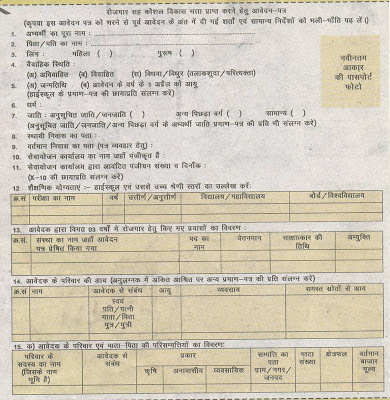 रोजगार सह कौशल विकास भत्ता प्राप्त करने हेतु आवेदन-पत्र
(कृपया इस आवेदन पत्र को भरने से पूर्व आवेदन के अंत में दी गई शर्तों एवं सामान्य निर्देशों को भली-भाँति पढ़ लें।)
1. अभ्यर्थी का पूरा नाम :
2. पिता/पति का नाम :
3. लिंग : महिला ( ) पुरूष ( )
4. वैवाहिक स्थिति :
(अ) अविवाहित (ब) विवाहित (स) विधवा/विधुर (तलाकशुदा/परित्यक्ता)
5. (अ) जन्मतिथि (ब) आवेदन के वर्ष के 1 अप्रैल को आयु
(हाईस्कूल के प्रमाण-पत्र की छायाप्रति संलग्न करें)
नवीनतम
आकार
की पासपोर्ट
फोटो
6. धर्म :
7. जाति : अनुसूचित जाति/जनजाति ( ) अन्य पिछड़ा वर्ग ( ) सामान्य ( )
(अनुसूचित जाति/जनजाति/अन्य पिछड़ा वर्ग के अभ्यर्थी जाति प्रमाण-पत्र की प्रति भी संलग्न करें)
8. स्थायी निवास का पता :
9. वर्तमान निवास का पता (पत्र व्यवहार हेतु) :
10. सेवायोजन कार्यालय का नाम जहाँ पंजीकृत हैं :
11. सेवायोजन कार्यालय द्वारा आवंटित पंजीयन संख्या व दिनाँक :
(X-10 की छायाप्रति संलग्न करें)
12 शैक्षणिक योग्यताएं :- हाईस्कूल एवं उससे उच्च श्रेणी स्तरों का उल्लेख करें:
क्र.सं परीक्षा का नाम वर्ष उत्तीर्ण/अनुत्तीर्ण विद्यालय/महाविद्यालय बोर्ड/विश्वविद्यालय
13. आवेदक द्वारा विगत 03 वर्षों में रोजगार हेतु किए गए प्रयासों का विवरण :
क्र.सं. संस्था का नाम जहाँ आवेदन पत्र प्रेषित किया गया पद का नाम वेतनमान साक्षात्कार की तिथि अभ्युक्ति
14. आवेदक के परिवार की आय (अनुलग्नक में अंकित आश्रित पर अन्य प्रमाण-पत्र की प्रति संलग्न करें)
क्र.सं नाम आवेदक से संबंध आयु व्यवसाय समस्त स्रोतों से आय
स्वयं
पति/पत्नी
माता/पिता
पुत्र/पुत्री
15. क) आवेदक के परिवार एवं माता-पिता की परिसम्पत्तियों का विवरण:
परिवार के सदस्य का नाम (जिसके नाम भूमि है) आवेदक से संबंध प्रकार सम्पत्ति का पता ग्राम/नगर/जनपद गाटा संख्या क्षेत्रफल वर्तमान बाजार मूल्य
कृषि अनावासीय व्यवसायिक